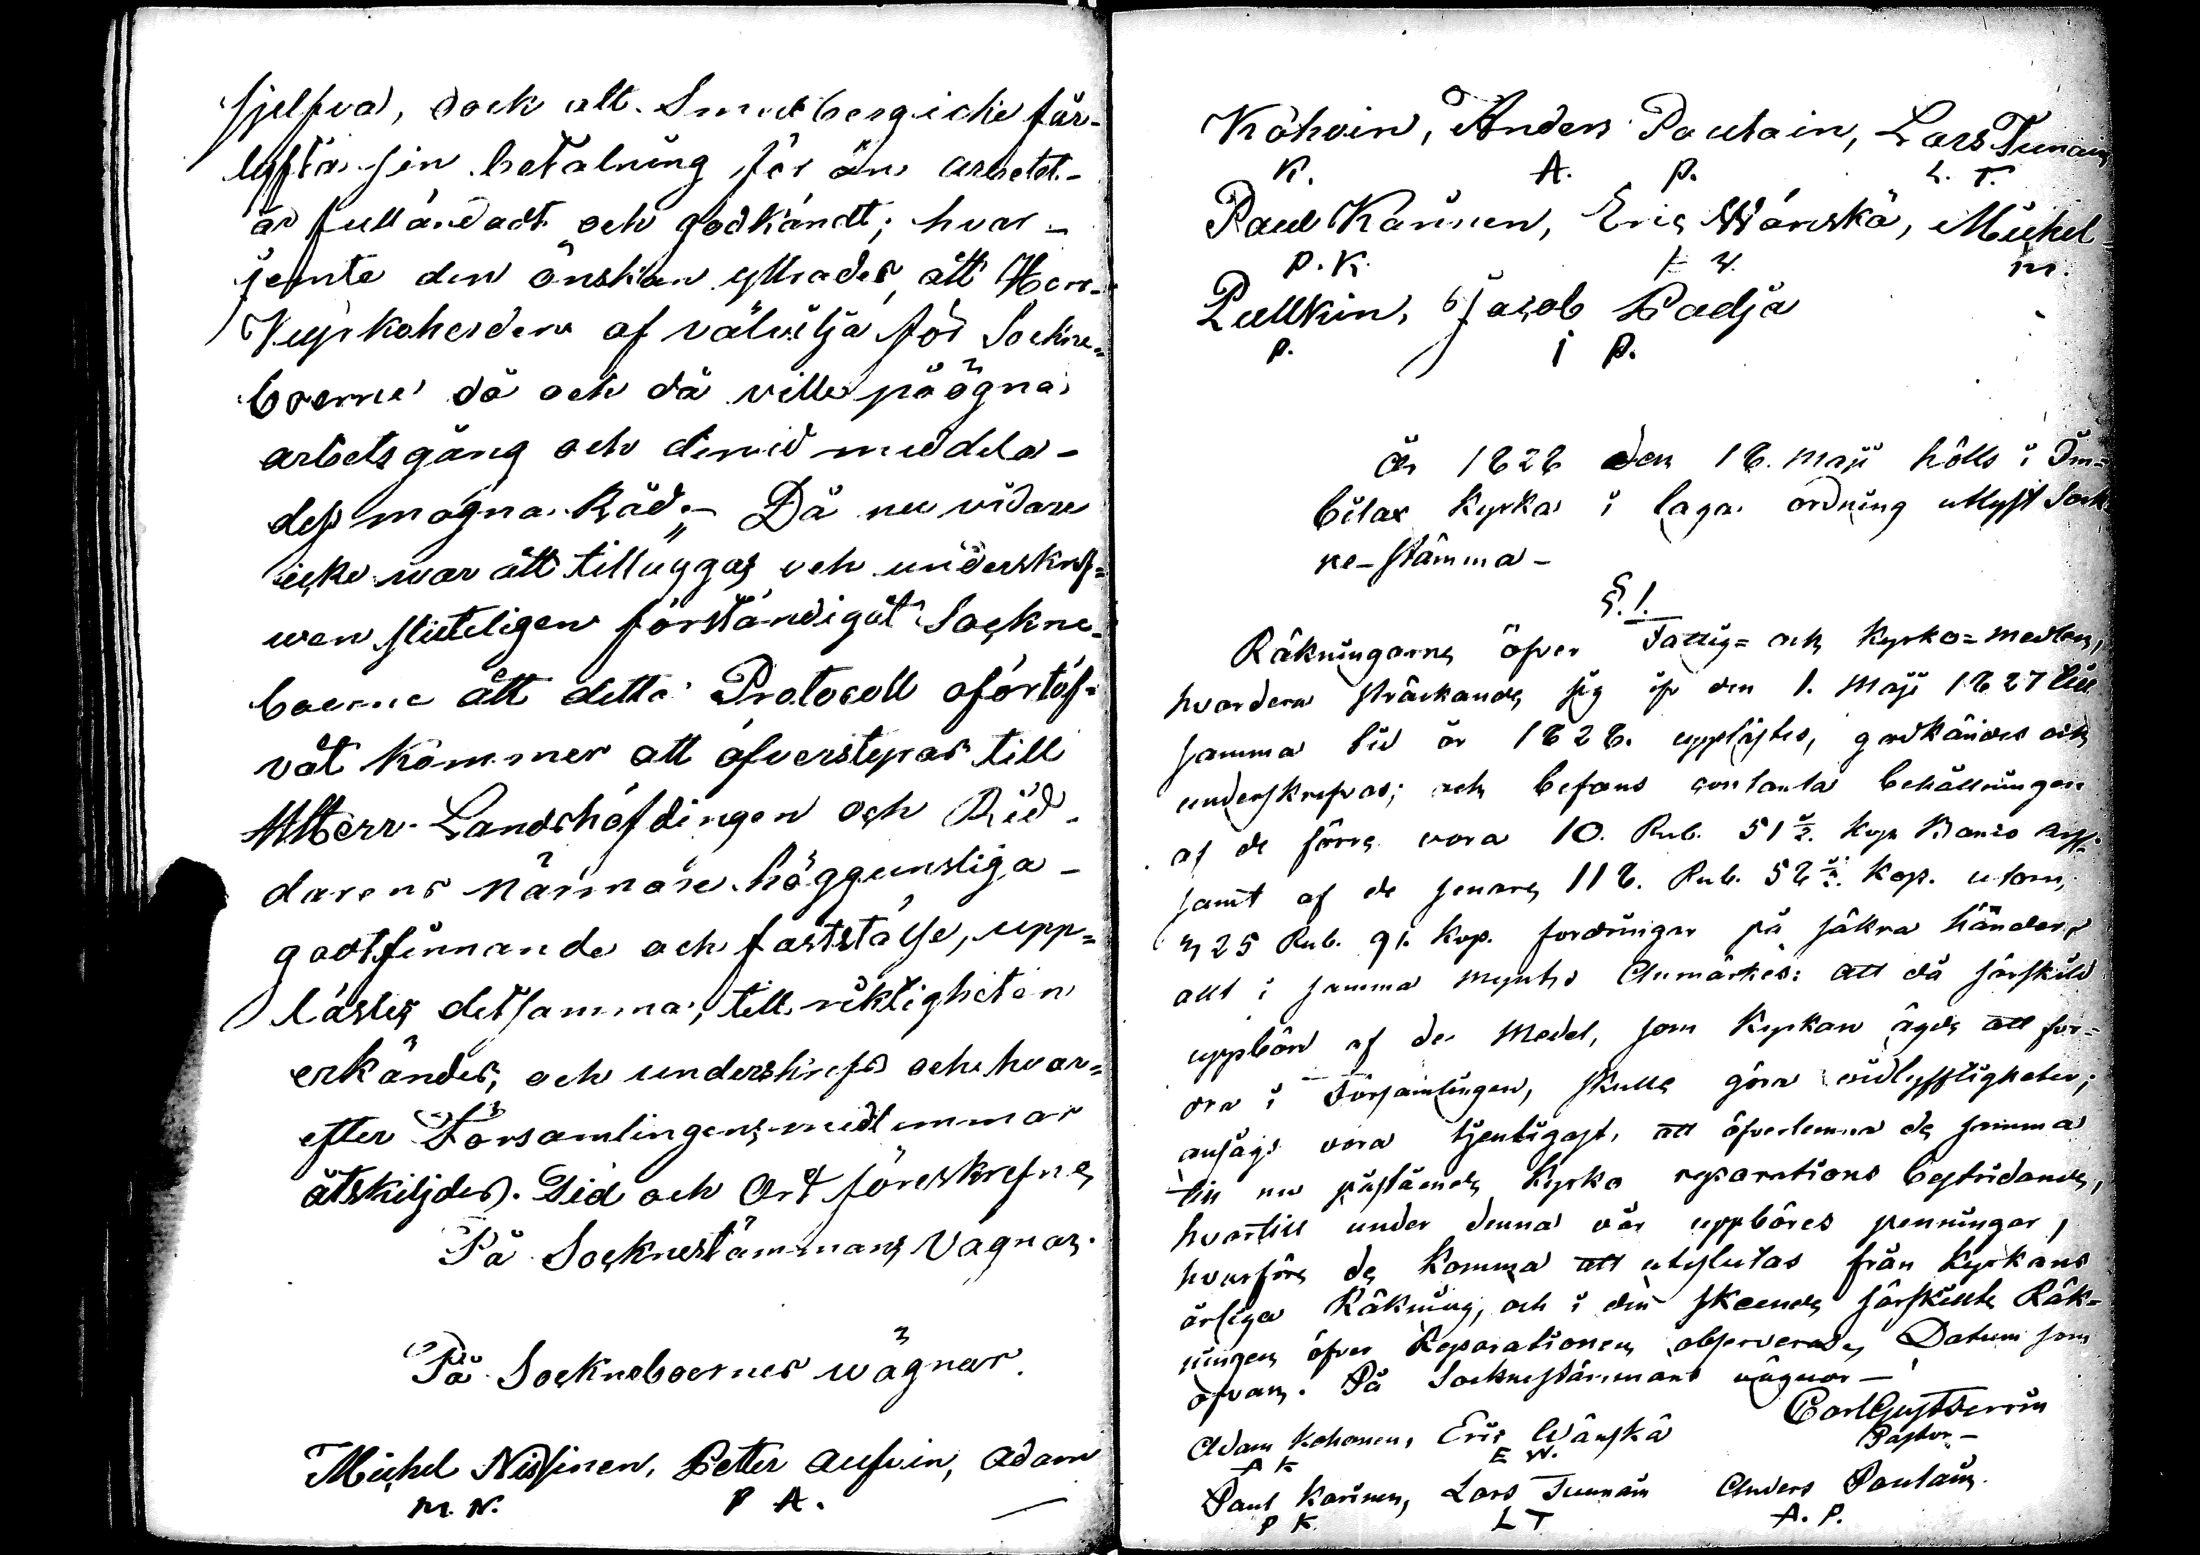 sjelfva, dock att Smedberg icke får-
lyfta sin betalning för än arbetet-
är fulländadt och godkändt; hvar-
jemte den önskan yttrades, att Herr-
Kyrkoherden af välvilja för Sockne-
boerne då och då ville påögna
arbetsgång och dervid meddela-
dess mogna Råd.- Då nu vidare
icke war att tillägga och underskrif-
wen sluteligen förständigat Sockne-
boerne att detta Protocoll oförtöf-
vat kommer att öfverstyras till
HHerr Landshöfdingen och Rid-
darens närmare höggunstiga-
godtfinnande och fastställe, upp-
lästes detsamma, till riktigheten
erkändes, och underskrefs och hvar-
efter Församlingens medlemmar
åtskiljdes. Tid och Ort föreskrefne
På Socknestämmans vägnar.
På Socknaboernes wägnar.
Michel Nissinen, Petter Aufvin, Adam
M. N. P A.
Kohoin, Anders Pautain, Lars Tunnain
K. A. P. L. T.
Paul Karinen, Eric Wänskä, Michel
P. K. E W. M.
Pullkin, Jacob Padja
P. I P.
År 1828 den 18. Maji hölls i Im-
bilax Kyrka i laga ordning utlyst Sock-
ne-stämma-
§. 1.
Räkningarne öfver Fattig- och Kyrko-medlen,
hvardera sträckande sig ifr den 1. Maji 1827 till
samma tid år 1828. upplästes, godkändes och
underskrefvos; och befans contanta behållningen
af de förra vora 10. Rub. 51 1/2. Kop Banco Ass:
samt af de senare 118. Rub. 58 1/2. Kop. utom,
425 Rub. 91. Kop. fordringar på säkra händer,
allt i samma mynt. Anmärktes: att då särskild
uppbörd af de Medel, som Kyrkan ägde att for-
dra i Församlingen, skulle göra vidlyftigheter;
ansågs vora tjenligast, att öfverlemna de samma
till nu påstående Kyrko reparations bestridande,
hvartill under denna vår uppböres penningar,
hvarföre de komma att uteslutas från Kyrkans
årliga Räkning, och i den skeende särskilte Räk-
ningen öfver Reparationen observeras, Datum som
ofvan. På Socknestämmans vägnar-
Carl Gust Serrin
Pastor-
Adam Kohonen, Eric Wänskä
A K E W.
Paul Karinen, Lars Tunnain Anders Pautain.
P K L T A. P.